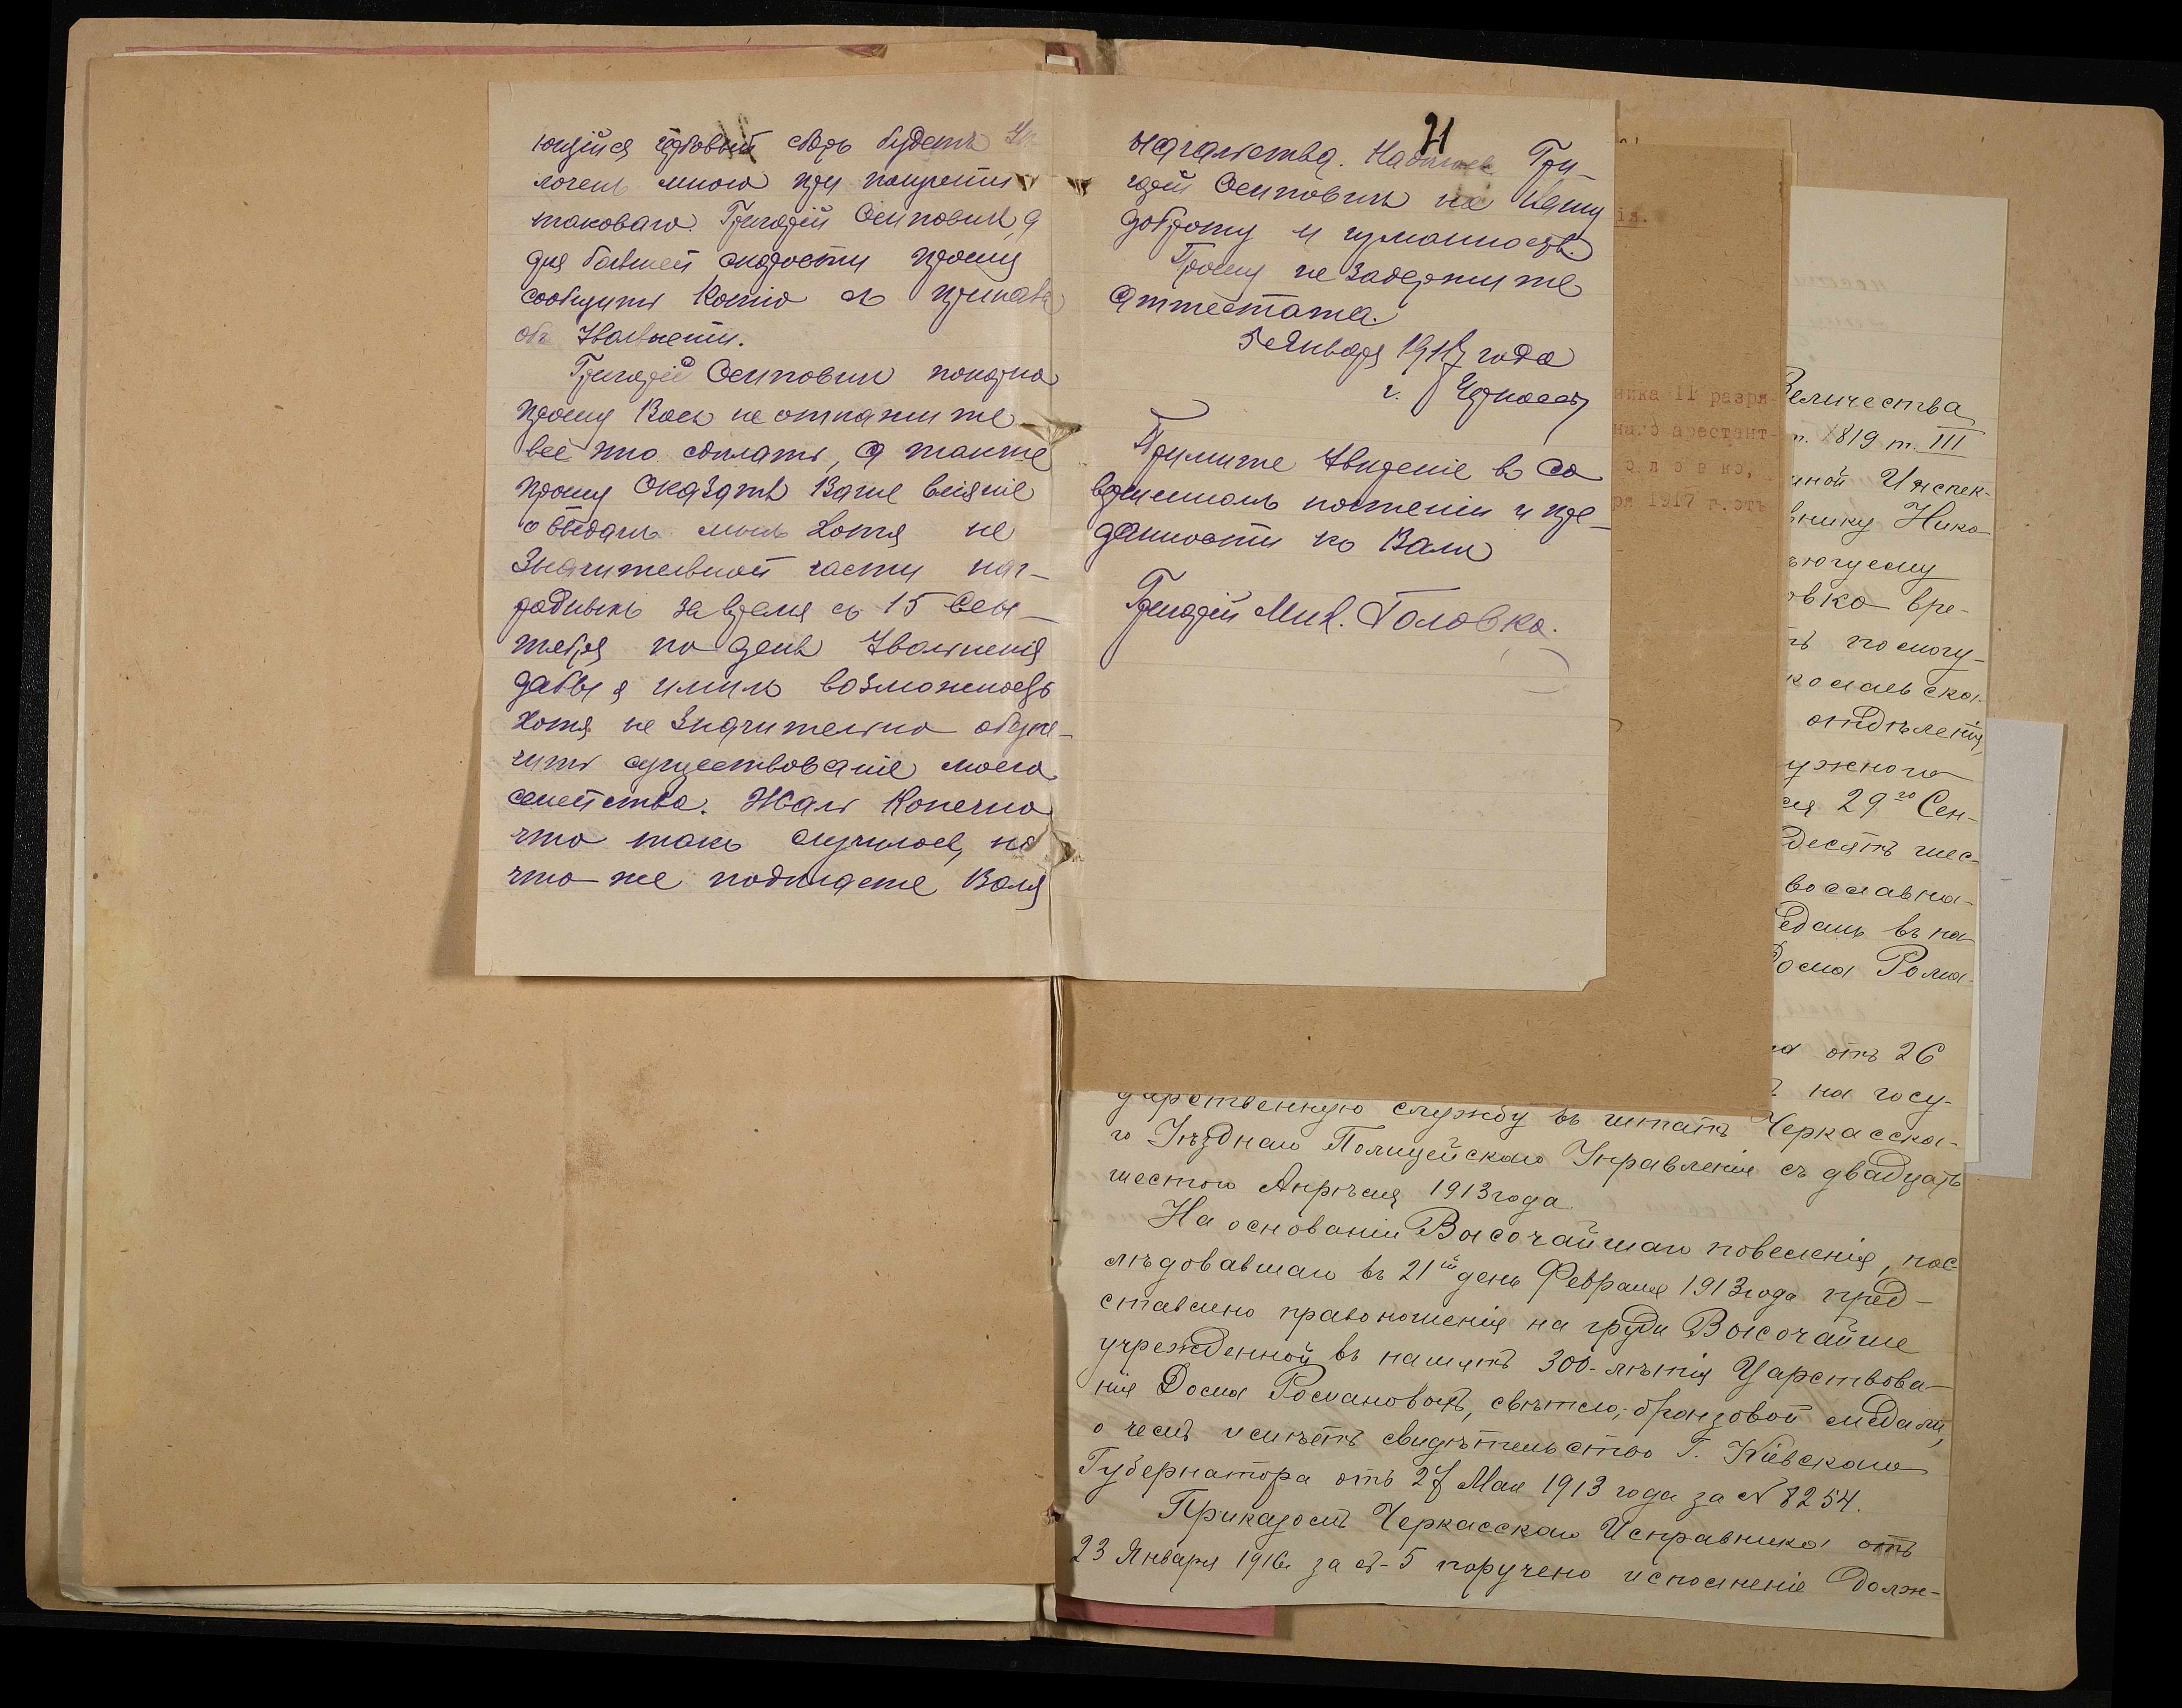 ющійся гербовый сборъ будетъ
лоченъ мною при полученіи
таковаго. Григорій Осиповичъ, а
для большей скорости прошу
сообщить копію съ приказа
объ увольненіи.
Григорій Осиповичъ покорно
прошу Васъ не откажите
всё это сдѣлать, а также
прошу оказать Ваше вліяніе
о выдачѣ мнѣ хотя не
значительной части наг-
радныхъ за время съ 15 Сен-
тября по день увольненія
дабы я имѣлъ возможность
хотя не значительно обезпе-
чить существованіе моего
семейства. Жаль конечно
что такъ случилось, но
что же подѣлаете Воля
21
начальства. Надѣюсь Гри-
горій Осиповичъ на Вашу
доброту и гуманность.
Прошу не задержите
аттестата.
5 Января 1917 года
г. Черкассы
Примите увѣреніе въ со
вершенномъ почтеніи и пре-
данности къ Вамъ
Григорій Мих. Головко.
ія.
ника II разря-
наго арестант-
о л о в к о,
ря 1917 г. отъ
Величества
т. 1819 т. III
ной Инспек-
внику Нико-
ьющему
овко вре-
ть по могу-
колаевска-
отдѣленія,
ужного
ся 29го Сен-
десять шес-
вославна-
едаль въ па-
Дома Рома-
на отъ 26
ъ на госу-
дарственную службу въ штатъ Черкасска-
го Уѣзднаго Полицейскаго Управленія съ двадцать
шестого Апрѣля 1913 года
На основаніи Высочайшаго повелѣнія, пос-
лѣдовавшаго въ 21й день Февраля 1913 года пред-
ставлено право ношенія на груди Высочайше
учрежденной въ память 300-лѣтія Царствова-
нія Дома Романовыхъ, свѣтло-бронзовой медали,
о чемъ имѣетъ свидѣтельство Г. Кіевскаго
Губернатора отъ 27 Мая 1913 года за № 8254.
Приказомъ Черкасскаго Исправника отъ
23 Января 1916 г. за № 5 поручено исполненіе долж-